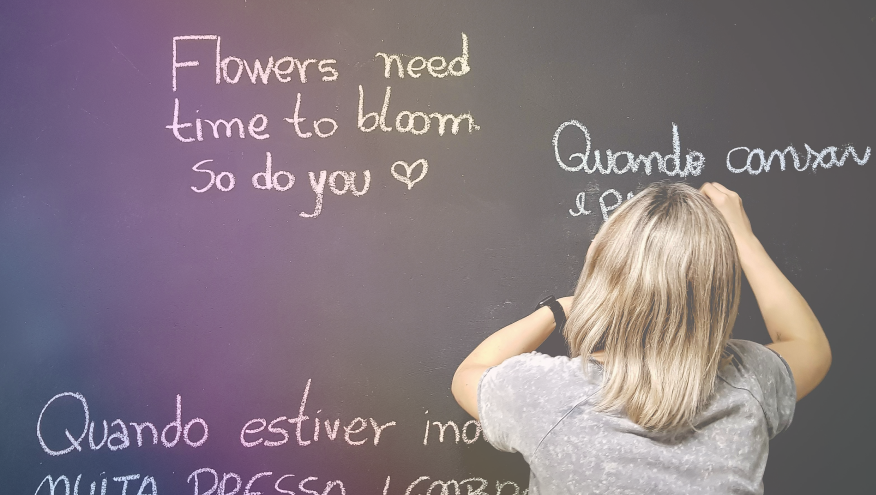 Flowers need
time to bloom
So do you ♡
Quando cansar
e
Quando estiver
MUITA